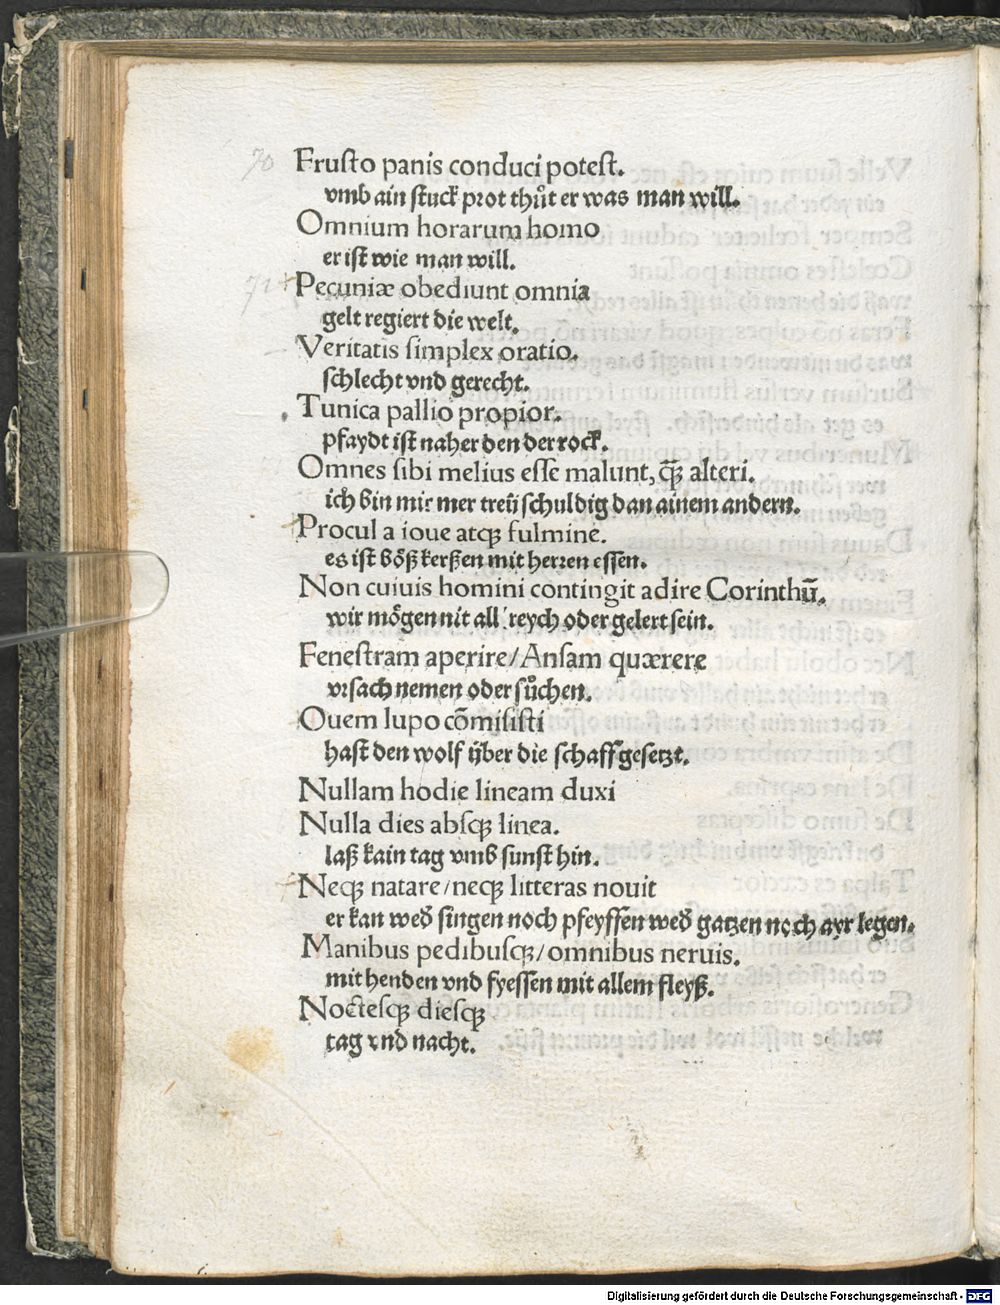 70 Frusto panis conduci potest.
vmb ain stuck prot thůt er was man will.
Omnium horarum homo
er ist wie man will.
71 Pecuniæ obediunt omnia
gelt regiert die welt.
Veritatis simplex oratio.
schlecht vnd gerecht.
Tunica pallio propior.
pfaydt ist naher den der rock.
Omnes sibi melius esse malunt, q̃ꝫ alteri.
ich bin mir mer treü schuldig dan ainem andern.
Procul a ioue atqꝫ fulmine.
es ist böß kerßen mit herren essen.
Non cuiuis homini contingit adire Corinthũ.
wir mögen nit all reych oder gelert sein.
Fenestram aperire/Ansam quærere
vrsach nemen oder sůchen.
Ouem lupo cõmisisti
hast den wolf über die schaff gesetzt.
Nullam hodie lineam duxi
Nulla dies absqꝫ linea.
laß kain tag vmb sunst hin.
Neqꝫ natare/neqꝫ litteras nouit
er kan wed̕ singen noch pfeyffen wed̕ gatzen noch ayr legen.
Manibus pedibusqꝫ/omnibus neruis.
mit henden vnd fyessen mit allem fleyß.
Noctesqꝫ diesqꝫ
tag vnd nacht.
Digitalisierung gefördert durch die Deutsche Forschungsgemeinschaft - DFG